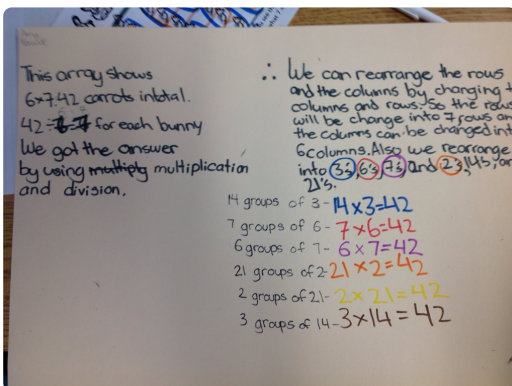 This array shows
6x7.42 carrots intotal.
42÷ for each bunny
We got the answer
by using multiply multiplication
and division.
∴ We can rearrange the rows
and the columns by changing
columns and rows. So the rows
will be change into 7 rows and
the columns can be changed int
6 columns. Also we rearrange
into 3's, 6's, 7's, and 2's, 14s,
21's.
14 groups of 3-14x3=42
7 groups of 6-7x6=42
6 groups of 7-6x7=42
21 groups of 2-21x2=42
2 groups of 21-2x21=42
3 groups of 14-3x14=42